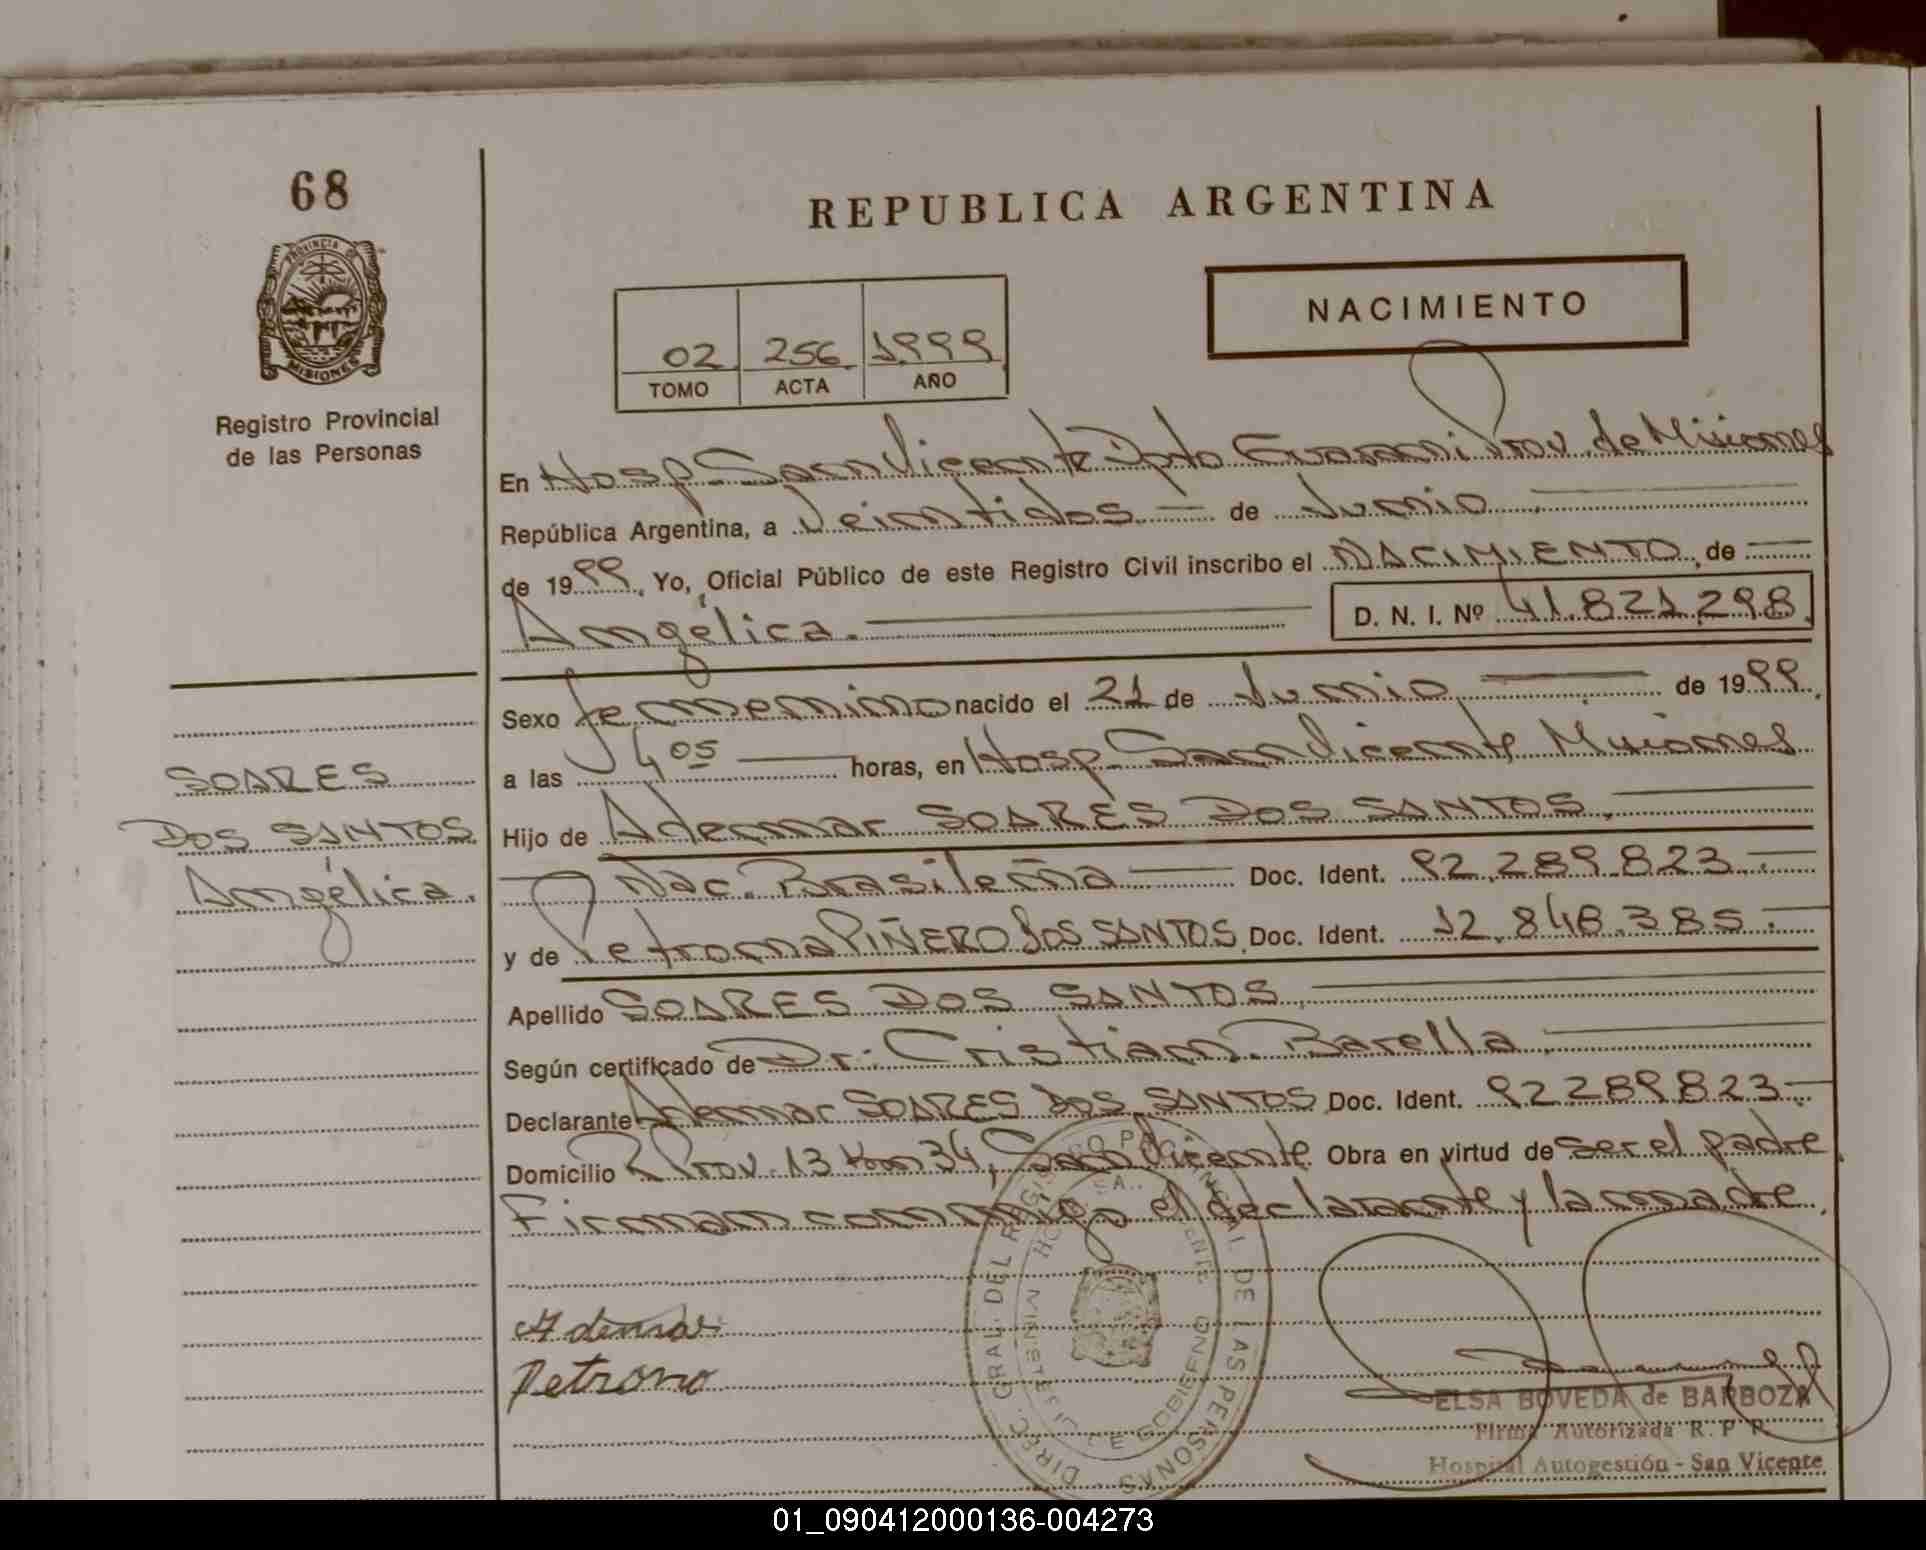 68
PROVINCIA DE
MISIONES
Registro Provincial
de las Personas
REPUBLICA ARGENTINA
NACIMIENTO
02 256 1999
TOMO ACTA AÑO
En Hosp. San Vicente Dpto Guaraní Prov. de Misiones
República Argentina, a Veintidos de Junio
de 1999, Yo, Oficial Público de este Registro Civil inscribo el NACIMIENTO, de
Angélica. D. N. I. Nº 41.821.298
Sexo femenino nacido el 21 de Junio de 1999
a las 4 05 horas, en Hosp. San Vicente Misiones
Hijo de Ademar SOARES DOS SANTOS
Nac. Brasileña Doc. Ident. 92.289.823.
y de Petrona PIÑERO DOS SANTOS Doc. Ident. 12.848.385.
Apellido SOARES DOS SANTOS
Según certificado de Dr. Cristian Barella
Declarante Ademar SOARES DOS SANTOS Doc. Ident. 92289823
Domicilio R. Prov. 13 Km 34, San Vicente Obra en virtud de ser el padre
Firman conmigo el declarante y la madre.
SOARES
DOS SANTOS
Angélica.
Ademar
Petrona
DIREC. GRAL. DEL REGISTRO PROVINCIAL DE LAS PERSONAS
MINISTERIO DE GOBIERNO
ELSA BOVEDA de BARBOZA
Firma Autorizada R. P. P.
Hospital Autogestión - San Vicente
01_090412000136-004273